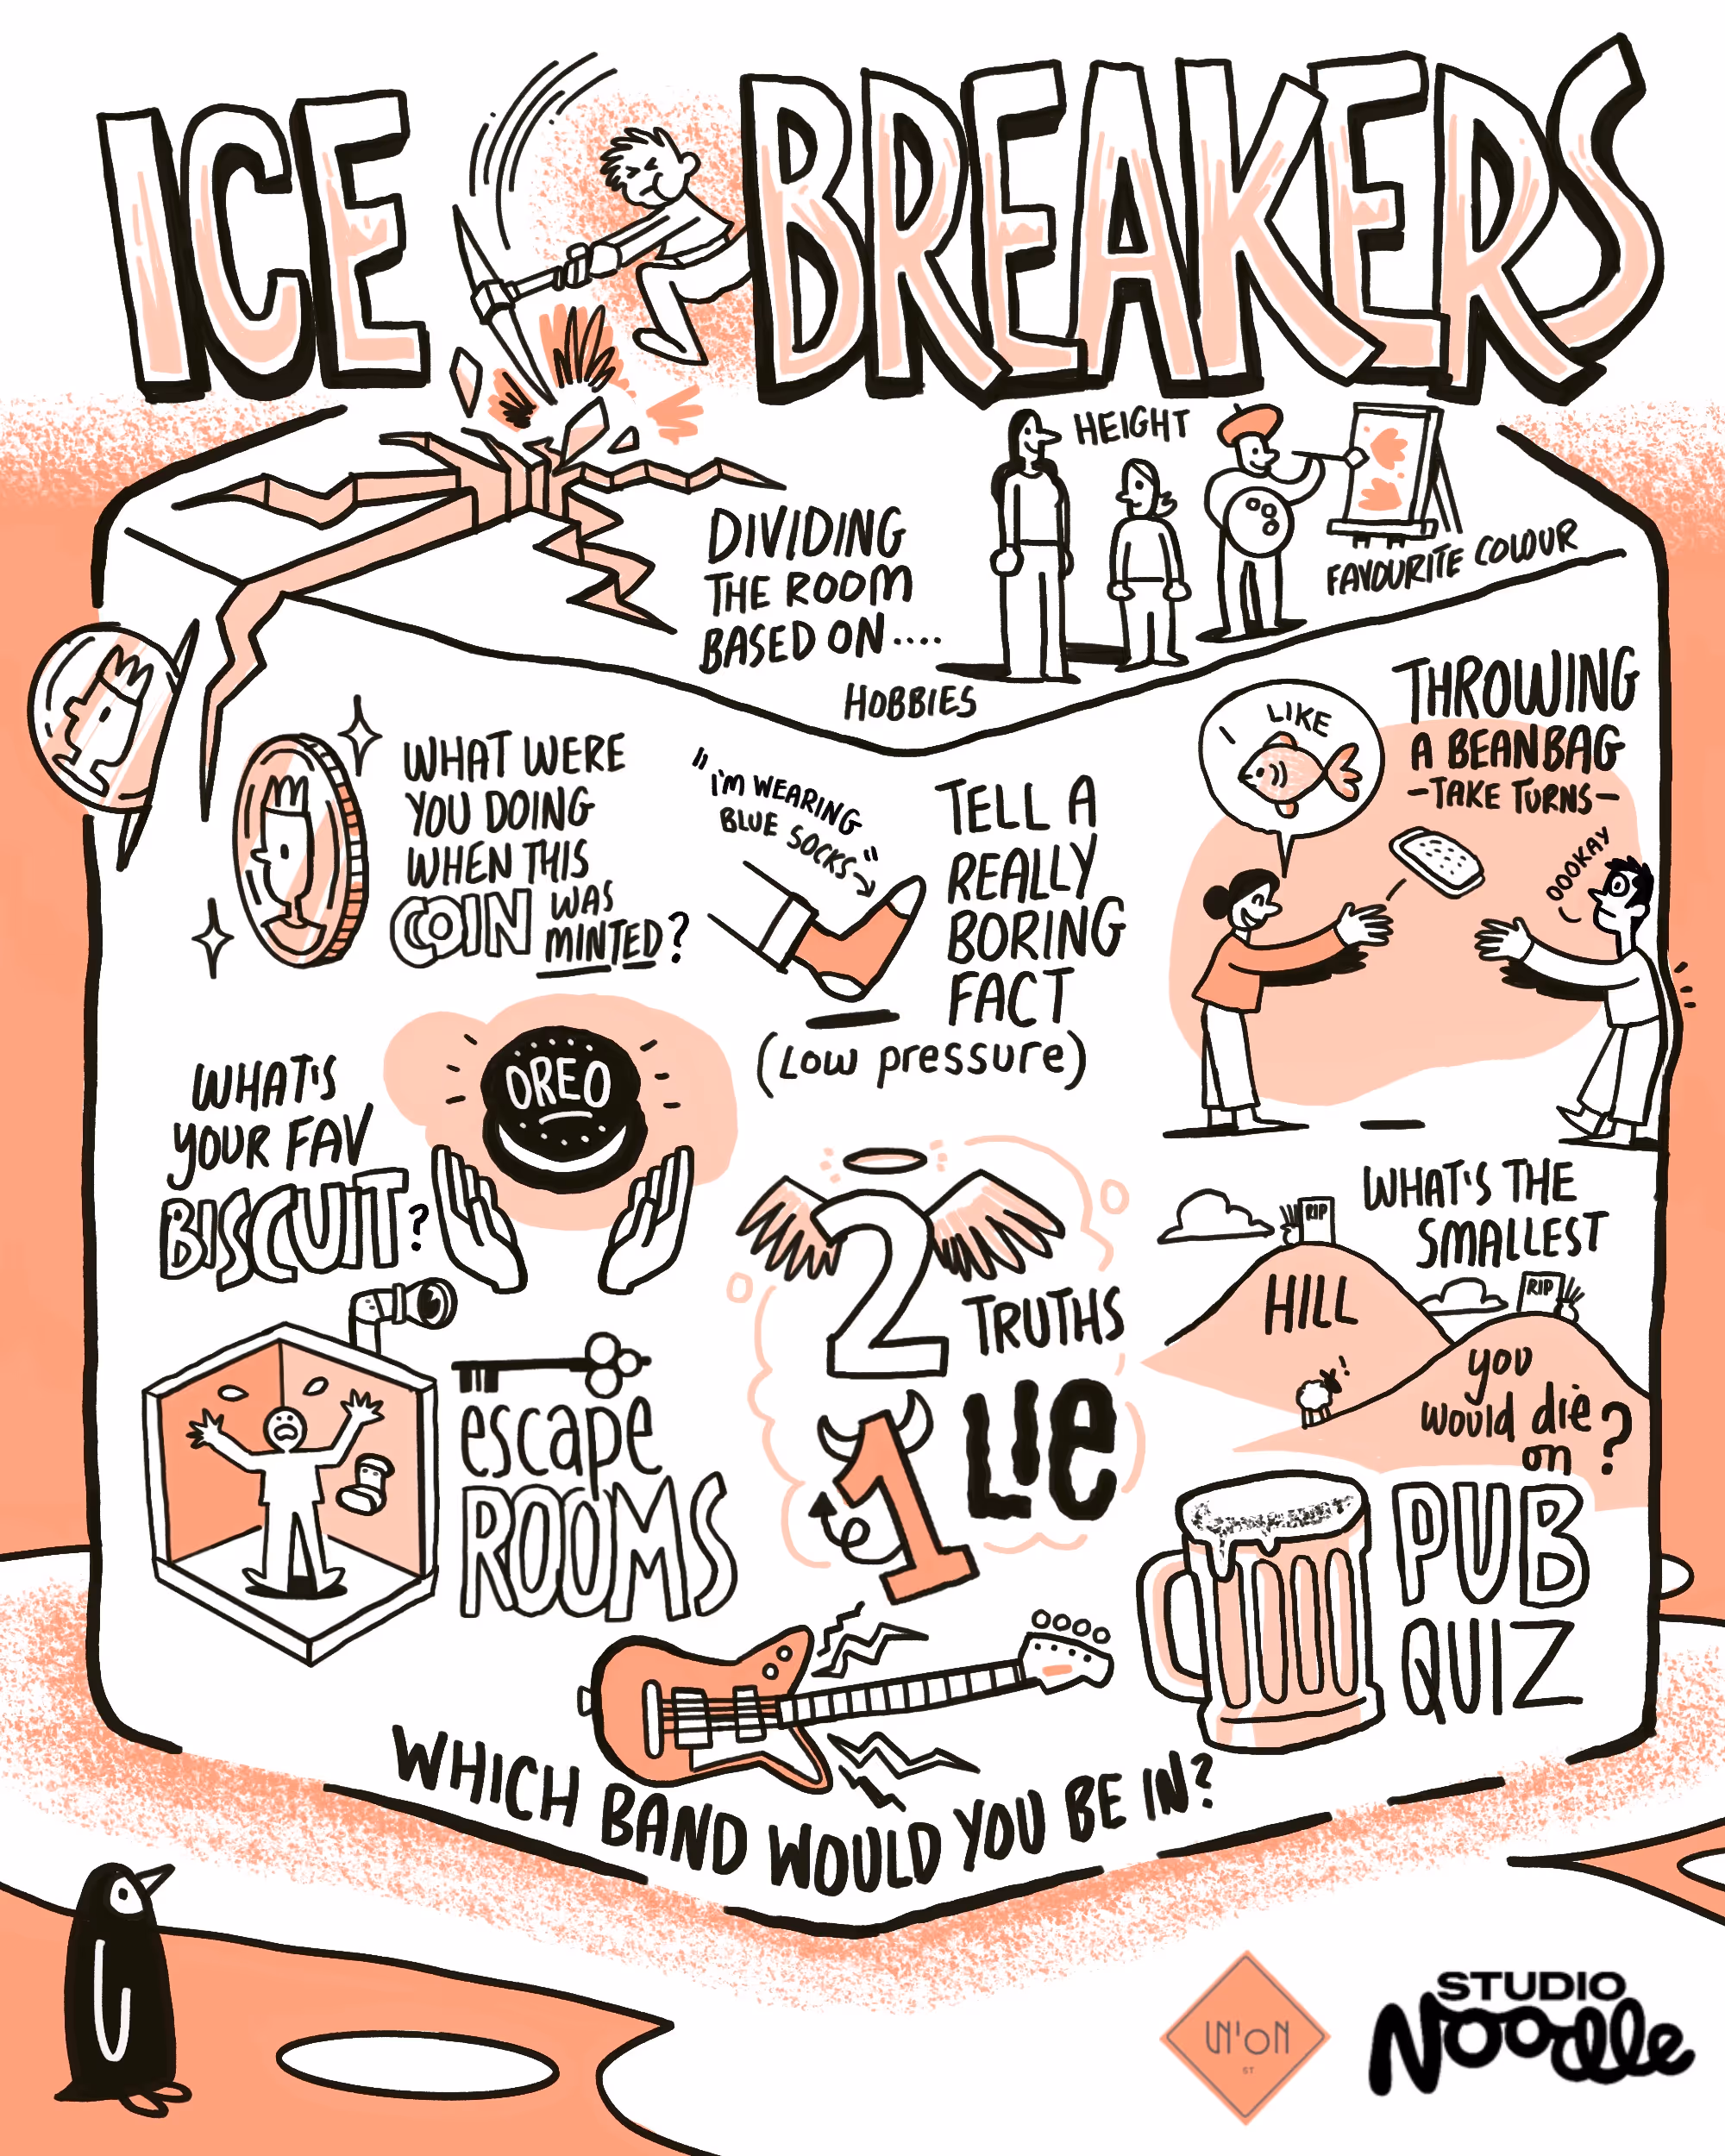 ICE BREAKERS
DIVIDING
THE ROOM
BASED ON....
HEIGHT
FAVOURITE COLOUR
HOBBIES
WHAT WERE
YOU DOING
WHEN THIS
COIN WAS
MINTED?
"I'M WEARING
BLUE SOCKS"
TELL A
REALLY
BORING
FACT
(Low pressure)
I LIKE
THROWING
A BEANBAG
-TAKE TURNS-
OOOKAY
WHAT'S
YOUR FAV
BISCUIT?
OREO
2 TRUTHS
1 LIE
WHAT'S THE
SMALLEST
HILL
you
would die
on?
RIP
RIP
escape
ROOMS
PUB
QUIZ
WHICH BAND WOULD YOU BE IN?
UN'ON
ST
STUDIO
Noodle